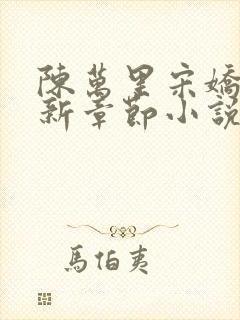 陳萬里宋嬌
新章節小說
馬伯夷